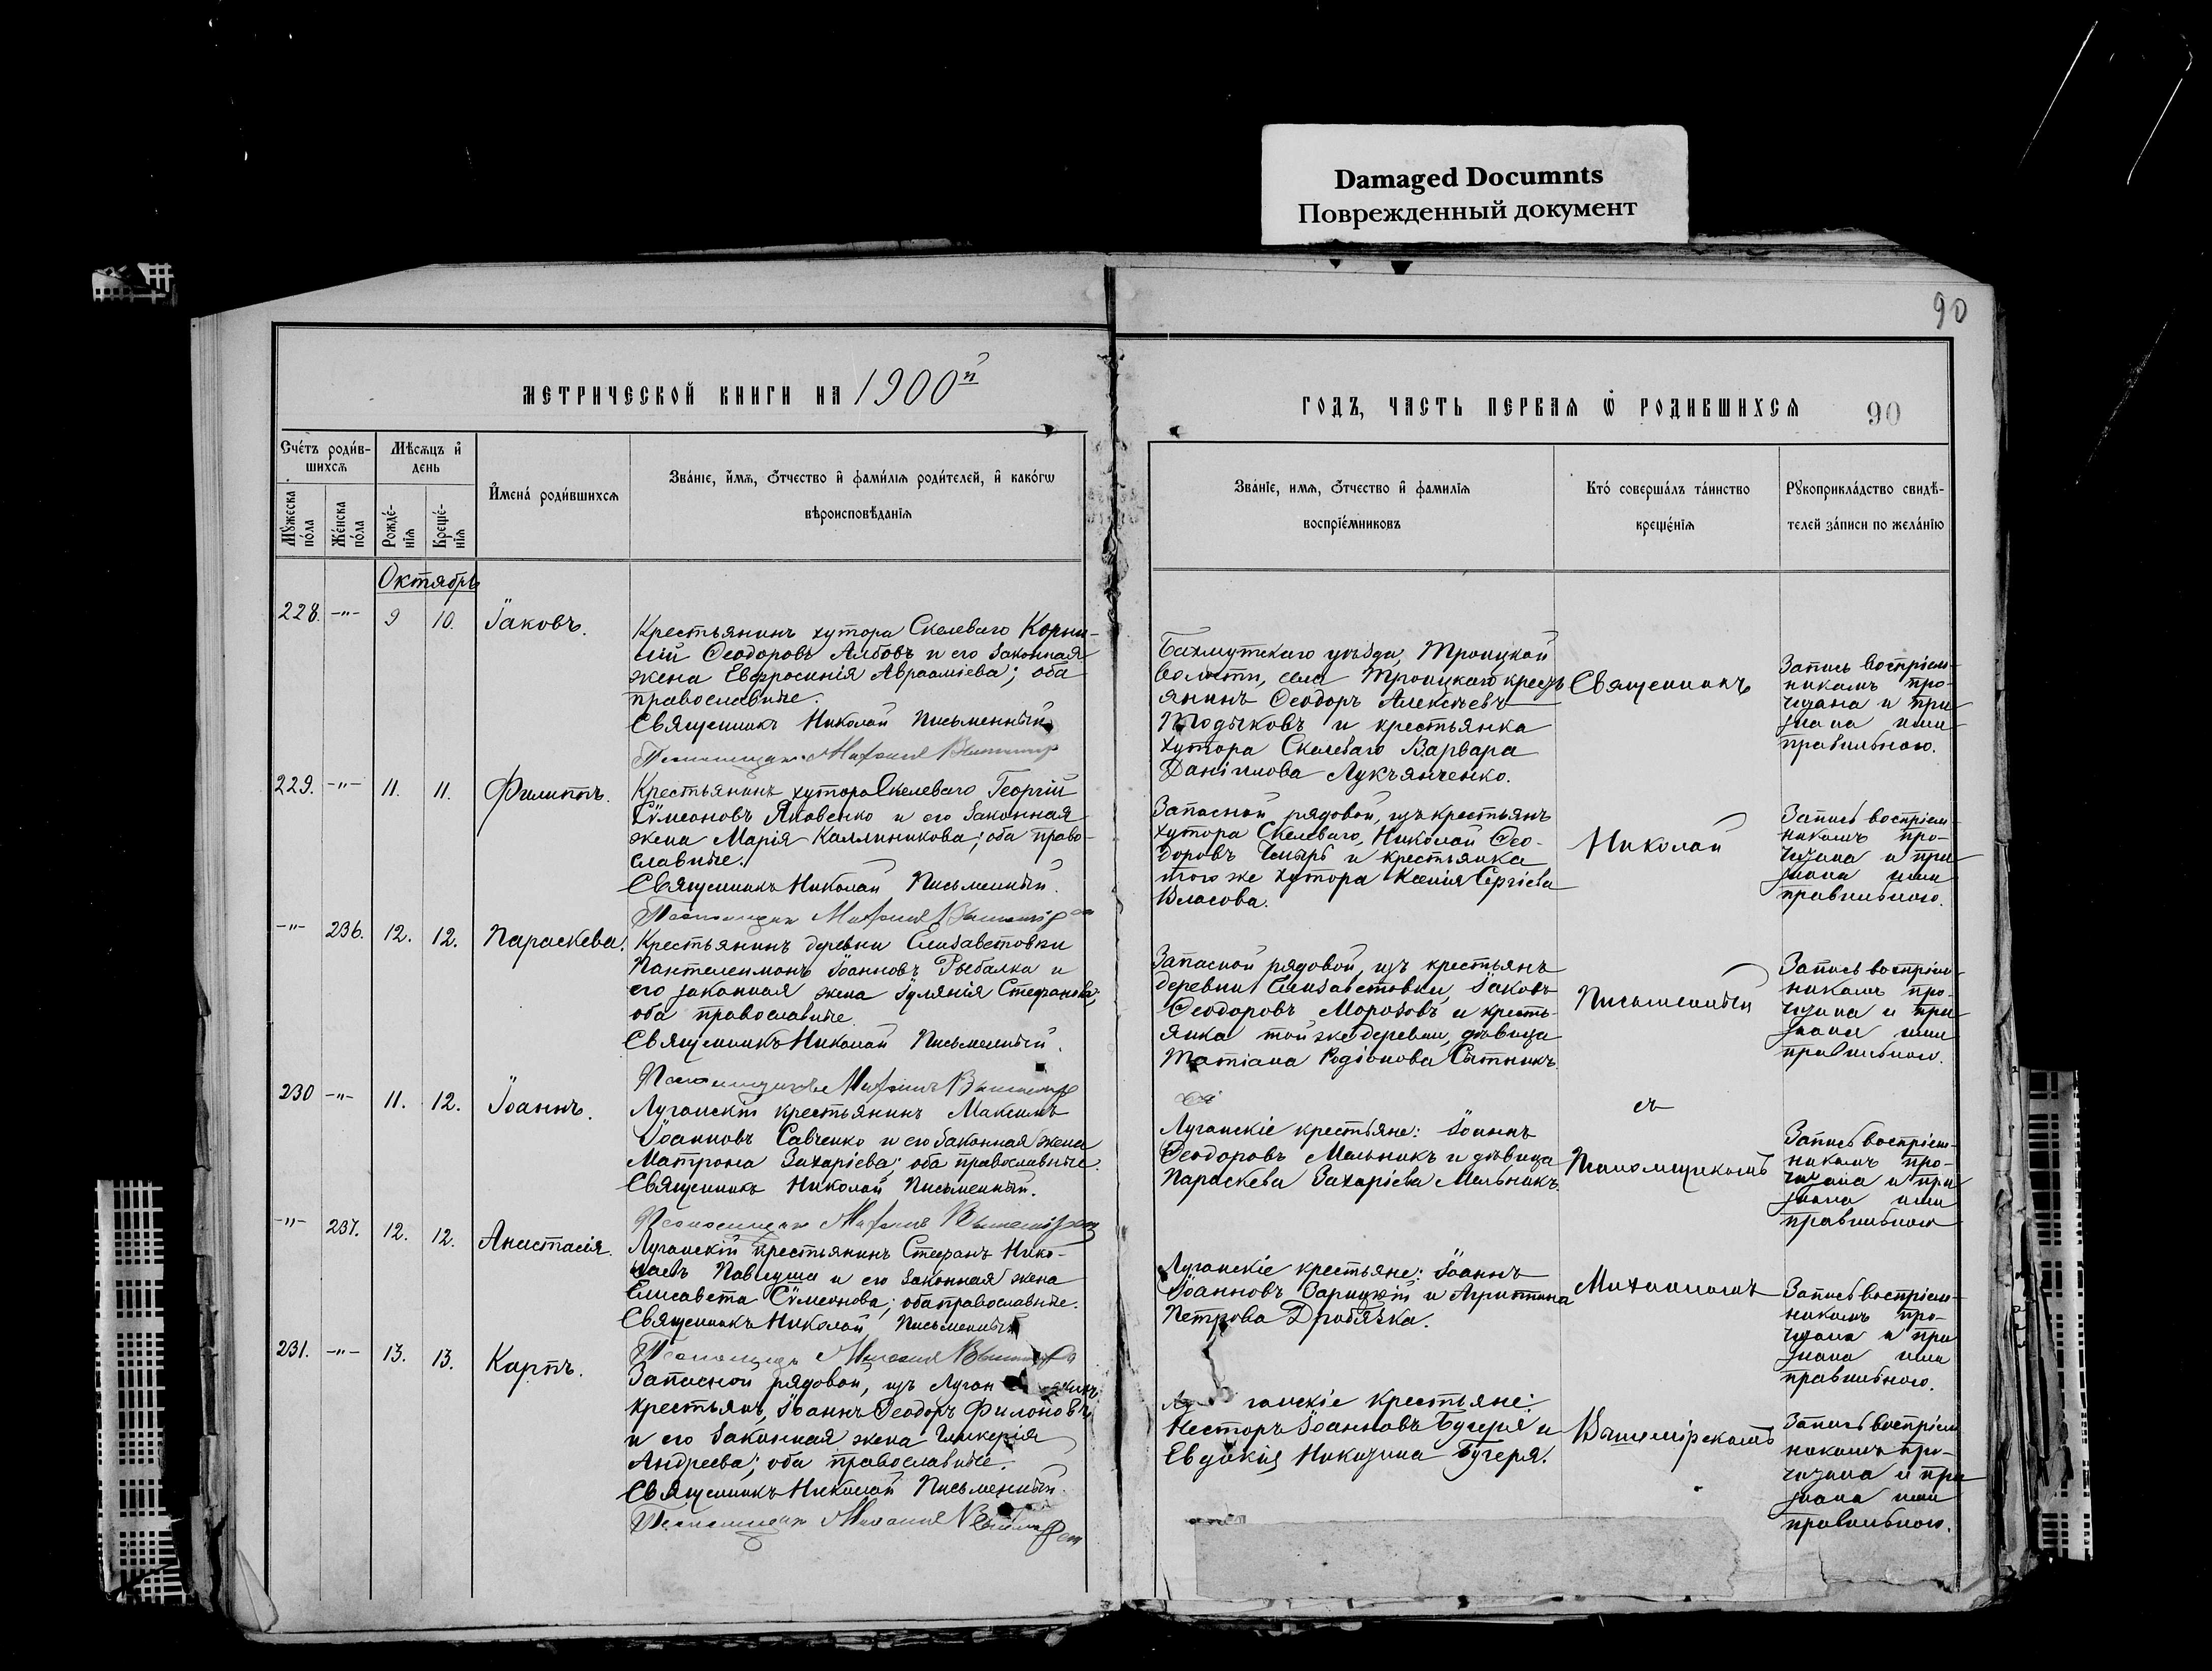 Damaged Documnts
Поврежденный документ
90
МЕТРИЧЕСКОЙ КНИГИ НА 1900й
ГОДЪ, ЧАСТЬ ПЕРВАЯ Ѡ РОДИВШИХСЯ 90
Счетъ родив-
шихся
Мужеска
пола
Женска
пола
Мѣсяцъ и
день
Рожде-
нія
Креще-
нія
Имена родившихся
Званіе, имя, отчество и фамилія родителей, и какогѡ
вѣроисповѣданія
Званіе, имя, отчество и фамилія
воспріемниковъ
Кто совершалъ таинство
крещенія
Рукоприкладство свидѣ-
телей записи по желанію
Октябрь
228. -"- 9 10. Іаковъ.
Крестьянинъ хутора Скелеваго Корни-
лій Ѳеодоровъ Албовъ и его законная
жена Евфросинія Авраамiева; оба
православные.
Священникъ Николай Письменный
Бахмутскаго уѣзда, Троицкой
волости, села Троицкаго кресть
янинъ Ѳеодоръ Алексѣевъ
и крестьянка
хутора Скелеваго Варвара
Даніилова Лукьянченко.
Священникъ
Запись воспріем-
никамъ про-
читана и при
знана ими
правильною.
229. -"- 11. 11. Филиппъ.
Крестьянинъ хутора Скелеваго Георгій
Сѵмеоновъ Яковенко и его законная
жена Марія Каллиникова; оба право-
славные.
Священникъ Николай Письменный.
Запасной рядовой, изъ крестьянъ
хутора Скелеваго, Николай Ѳео-
доровъ и крестьянка
того же хутора Ксенія Сергіева
Власова.
Николай
Запись воспріем-
никамъ про-
читана и при
знана ими
правильною.
-"- 236. 12. 12. Параскева.
Крестьянинъ деревни Елисаветовки
Пантелеимонъ Іоанновъ Рыбалка и
его законная жена Іуліянія Стефанова;
оба православные
Священникъ Николай Письменный.
Запасной рядовой, изъ крестьянъ
деревни Елисаветовки, Іаковъ
Ѳеодоровъ Морозовъ и кресть-
янка той же деревни, дѣвица
Татіана Родіонова Сытникъ.
Письменный
Запись воспріем-
никамъ про-
читана и при
знана ими
правильною.
230 -"- 11. 12. Іоаннъ.
Луганскій крестьянинъ Максимъ
Іоанновъ Савченко и его законная жена
Матрона Захаріева; оба православные.
Священникъ Николай Письменный.
Луганскіе крестьяне: Іоаннъ
Ѳеодоровъ Мельникъ и дѣвица
Параскева Захаріева Мельникъ.
съ
Псаломщикомъ
Запись воспріем-
никамъ про-
читана и при
знана ими
правильною
-"- 237. 12. 12. Анастасія.
Луганскій крестьянинъ Стефанъ Нико-
лаевъ Павлуша и его законная жена
Елисавета Сѵмеонова; оба православные.
Священникъ Николай Письменный
Луганскіе крестьяне: Іоаннъ
Іоанновъ Зарицкій и Агриппина
Петрова Дробязка.
Михаиломъ
Запись воспріем-
никамъ про-
читана и при
знана ими
правильною.
231. -"- 13. 13. Карпъ.
Запасной рядовой, изъ Луган
крестьянъ, Іоаннъ Ѳеодоръ Филоновъ
и его законная жена Гликерія
Андреева; оба православные.
Священникъ Николай Письменный.
ганскіе крестьяне:
Несторъ Іоанновъ Бугеря и
Евдокія Никитина Бугеря.
Вышемірскомъ
Запись воспріем
никамъ про-
читана и при
знана ими
правильною.